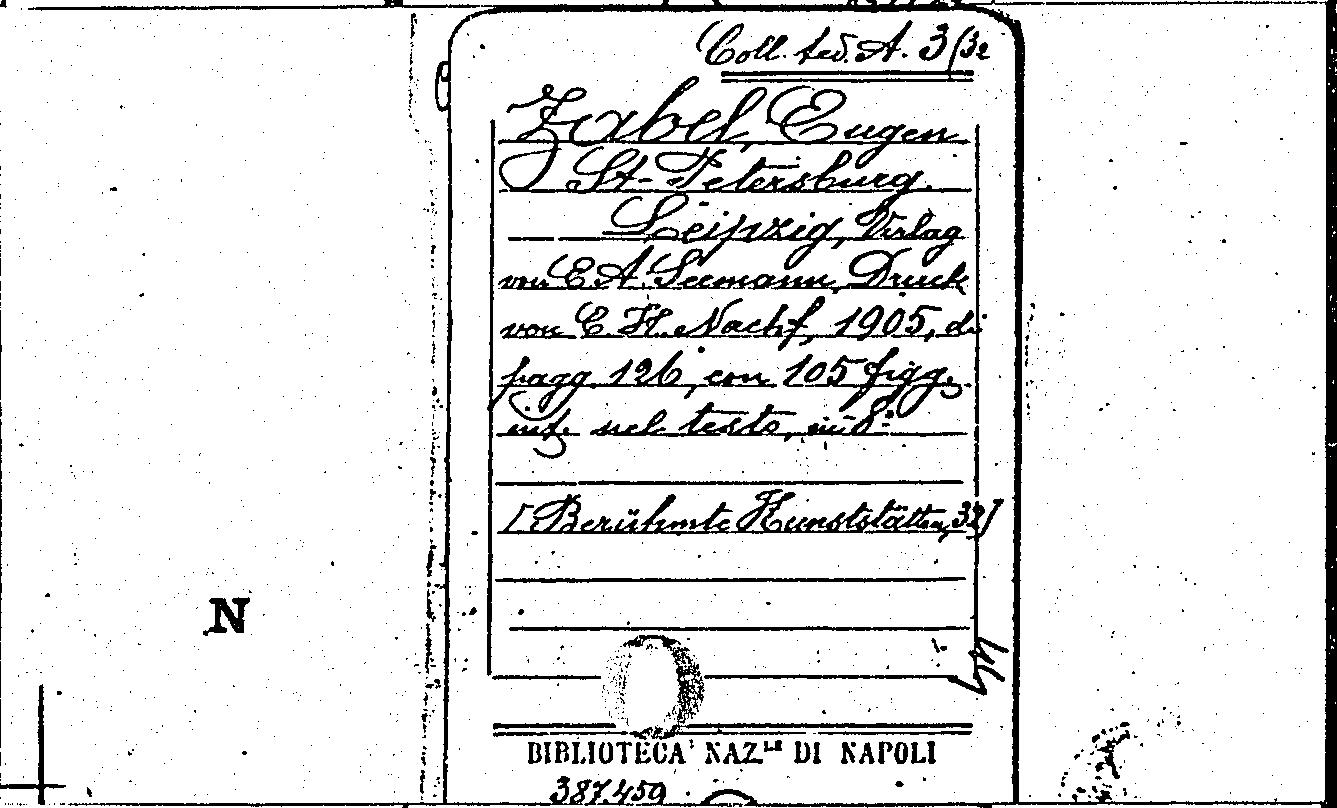 Coll. ted. A. 3/32
Zabel, Eugen
St-Petersburg.
Leipzig, Verlag
von E. A. Seemann, Druck
von E. H. Nachf, 1905, di
pagg. 126, con 105 figg.
int. nel testo, in 8º
[Berühmte Kunststätten, 32]
N
BIBLIOTECA NAZ.LE DI NAPOLI
387.459